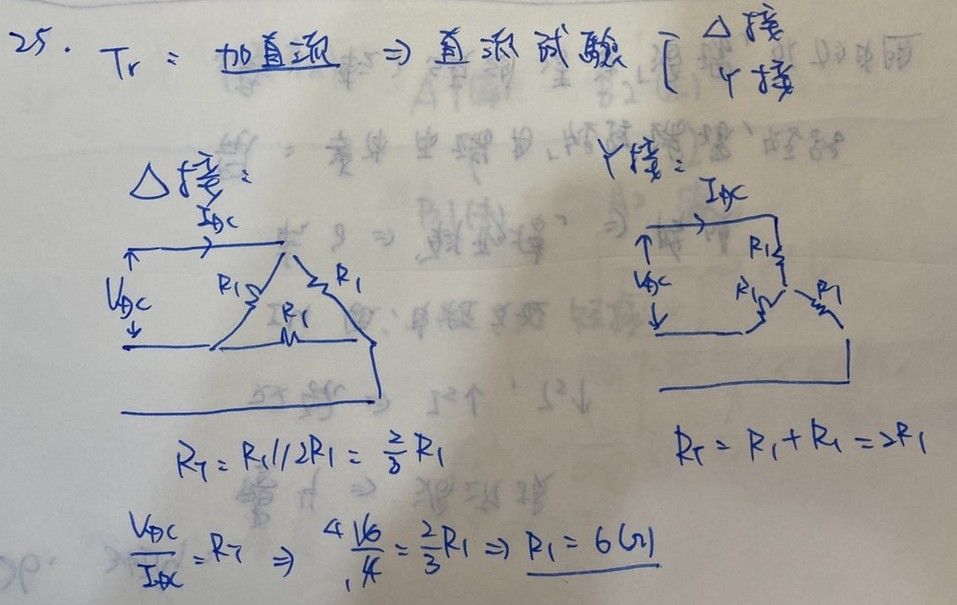 25. Tr = 加直流 ⇒ 直流試驗 [ △接
Y接
△接：
Y接：
IDC
IDC
VDC
R1
R1
R1
VDC
R1
R1
R1
RT = R1//2R1 = 2/3 R1
RT = R1 + R1 = 2R1
VDC/IDC = RT ⇒ 4 16/4 1 = 2/3 R1 ⇒ R1 = 6(Ω)